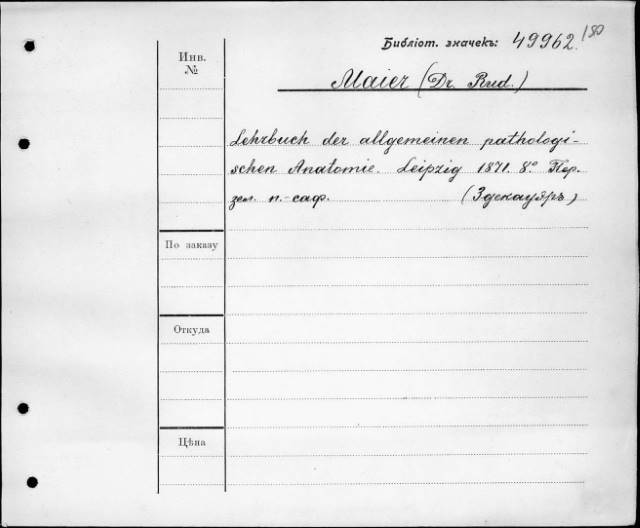 Библіот. значекъ: 49962. /80
Инв.
№
Maier (Dr. Rud.)
Lehrbuch der allgemeinen pathologi-
schen Anatomie. Leipzig 1871. 8°. Пер.
зел. п.-саф. (3 декауяръ)
По заказу
Откуда
Цѣна